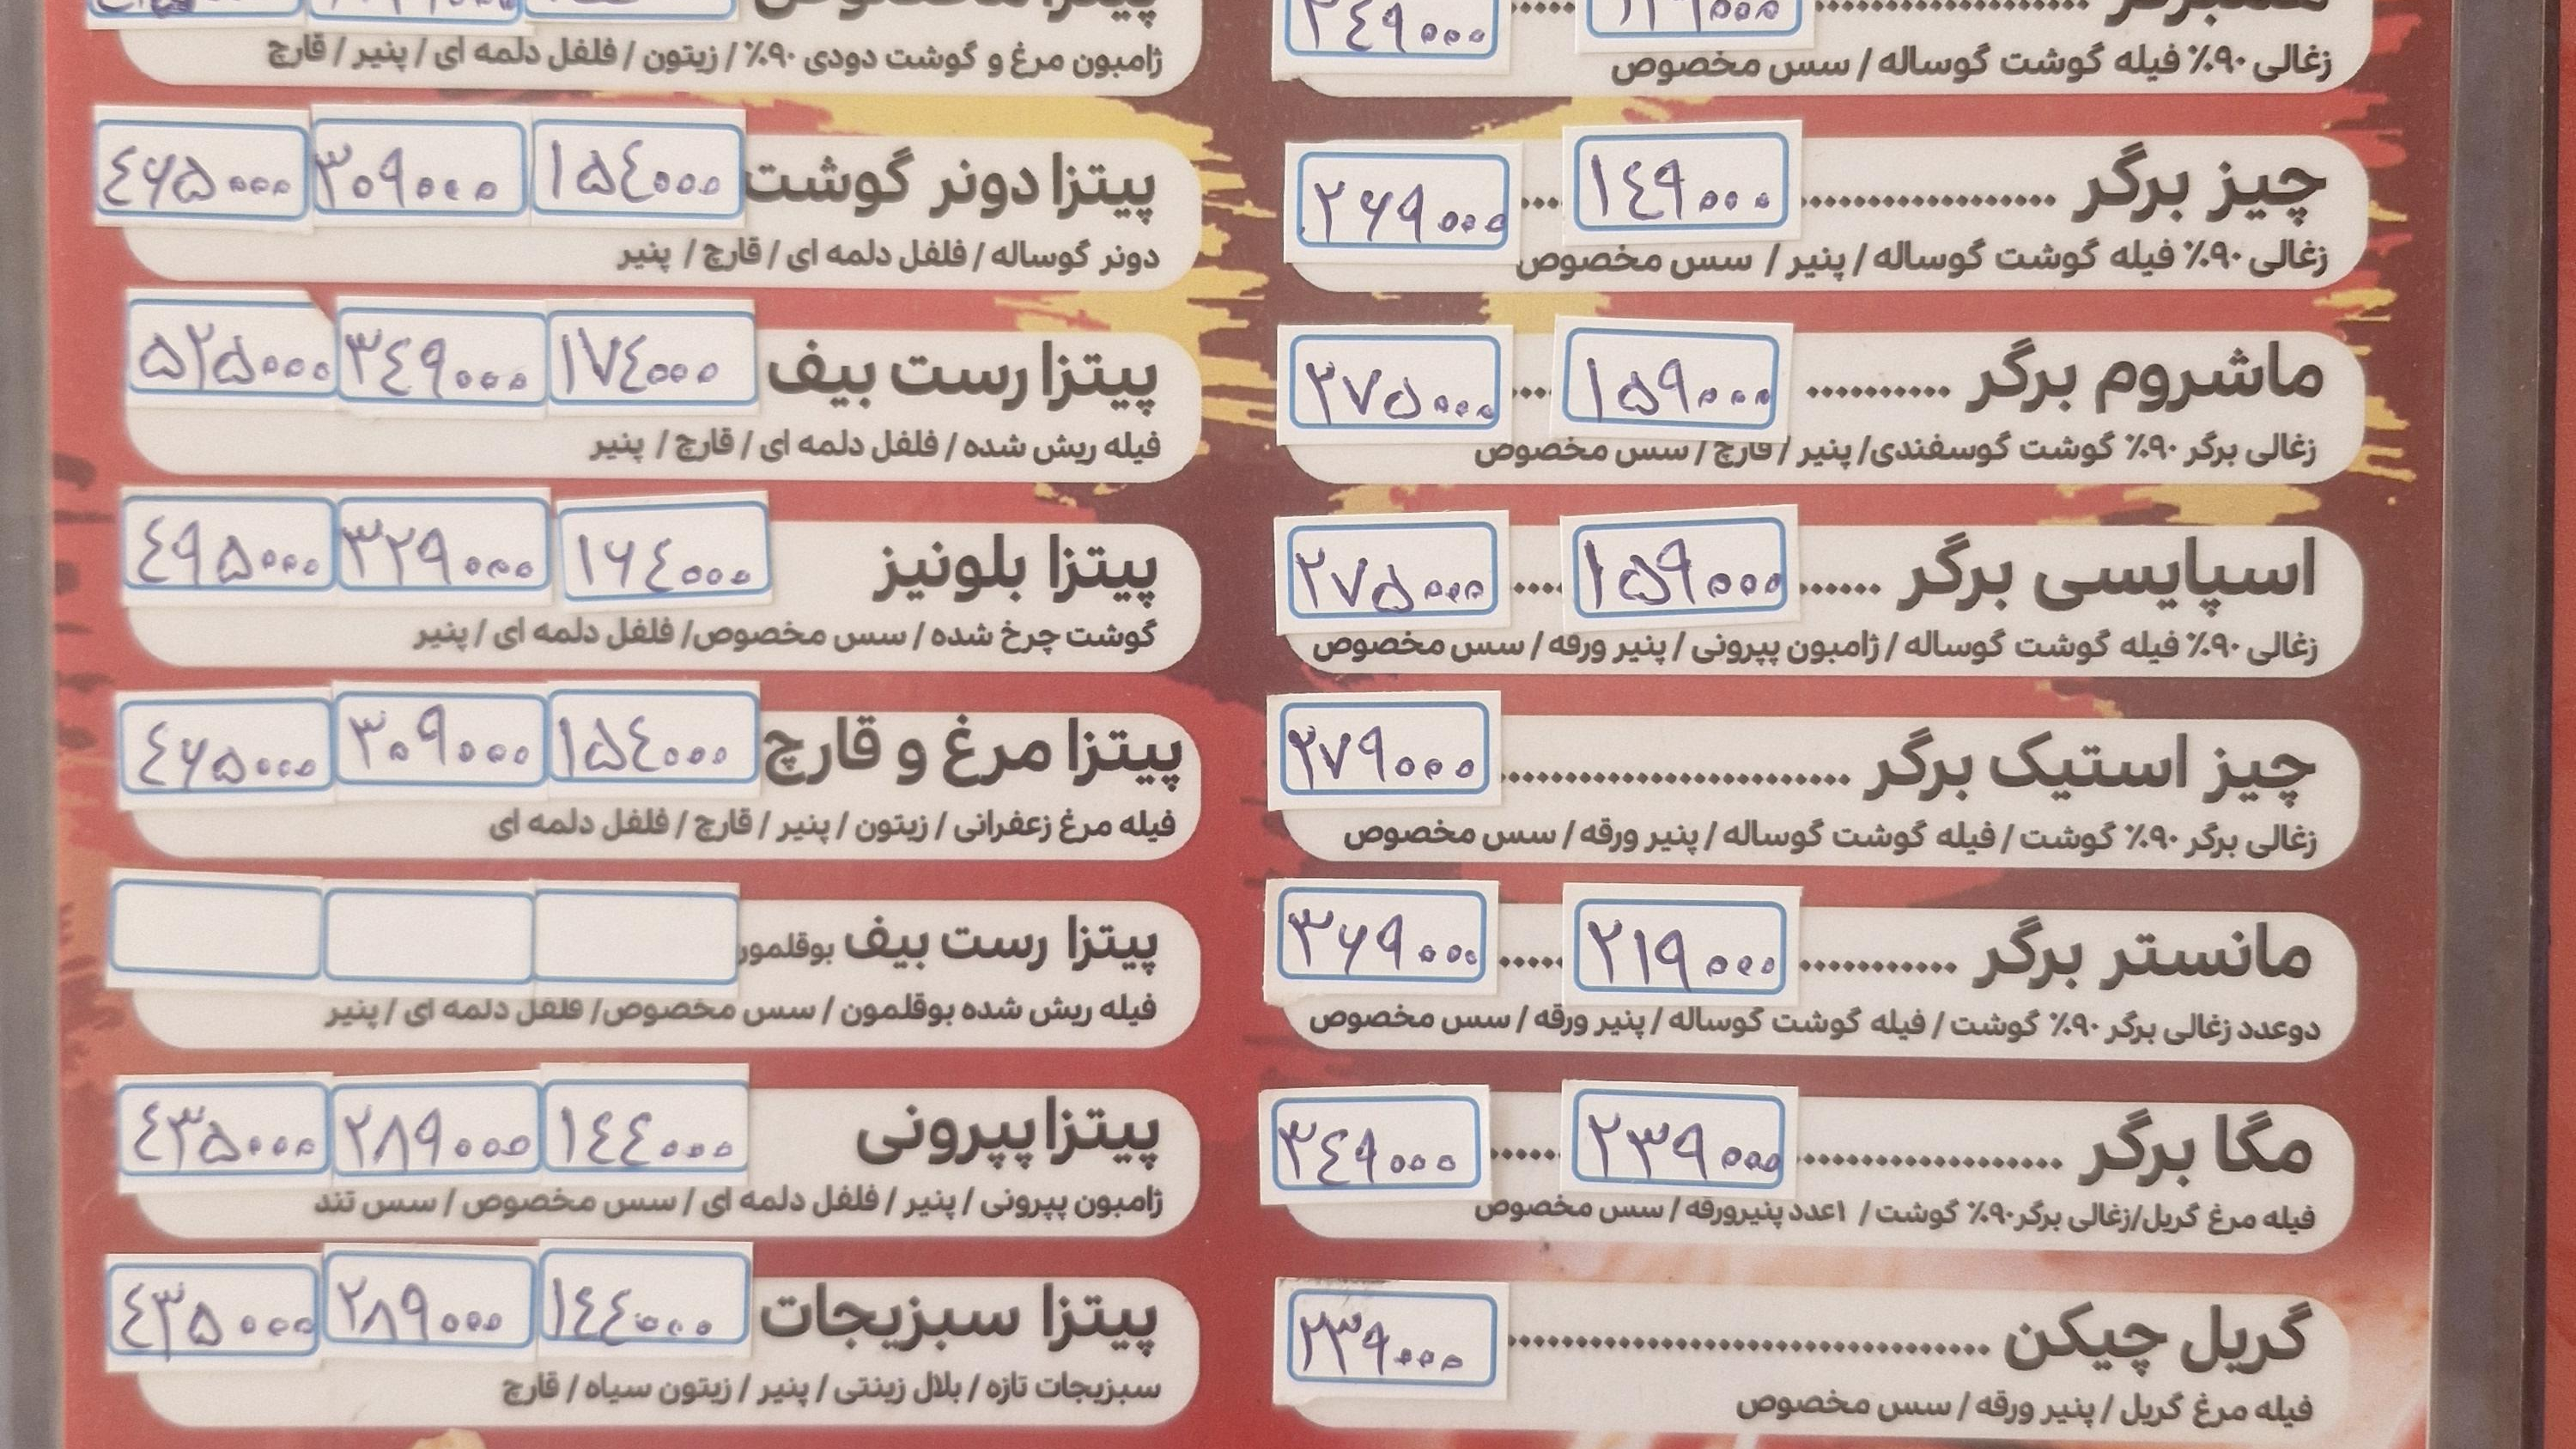 زغالی ۹۰٪ فیله گوشت گوساله / سس مخصوص
چیز برگر .................. ۱۴۹۰۰۰ .... ۲۶۹۰۰۰
زغالی ۹۰٪ فیله گوشت گوساله / پنیر / سس مخصوص
ماشروم برگر .......... ۱۵۹۰۰۰ .... ۲۷۵۰۰۰
زغالی برگر ۹۰٪ گوشت گوسفندی/ پنیر / قارچ / سس مخصوص
اسپایسی برگر ...... ۱۵۹۰۰۰ .... ۲۷۵۰۰۰
زغالی ۹۰٪ فیله گوشت گوساله / ژامبون پپرونی / پنیر ورقه / سس مخصوص
چیز استیک برگر .......................... ۲۷۹۰۰۰
زغالی برگر ۹۰٪ گوشت / فیله گوشت گوساله / پنیر ورقه / سس مخصوص
مانستر برگر ........... ۲۱۹۰۰۰ ..... ۳۶۹۰۰۰
دوعدد زغالی برگر ۹۰٪ گوشت / فیله گوشت گوساله / پنیر ورقه / سس مخصوص
مگا برگر ................... ۲۳۹۰۰۰ ..... ۳۴۹۰۰۰
فیله مرغ گریل/زغالی برگر۹۰٪ گوشت / ۱عدد پنیرورقه / سس مخصوص
گریل چیکن ................................... ۲۳۹۰۰۰
فیله مرغ گریل / پنیر ورقه / سس مخصوص
ژامبون مرغ و گوشت دودی ۹۰٪ / زیتون / فلفل دلمه ای / پنیر / قارچ
پیتزا دونر گوشت ۱۵۴۰۰۰ ۳۰۹۰۰۰ ۴۶۵۰۰۰
دونر گوساله / فلفل دلمه ای / قارچ / پنیر
پیتزا رست بیف ۱۷۴۰۰۰ ۳۴۹۰۰۰ ۵۲۵۰۰۰
فیله ریش شده / فلفل دلمه ای / قارچ / پنیر
پیتزا بلونیز ۱۶۴۰۰۰ ۳۲۹۰۰۰ ۴۹۵۰۰۰
گوشت چرخ شده / سس مخصوص/ فلفل دلمه ای / پنیر
پیتزا مرغ و قارچ ۱۵۴۰۰۰ ۳۰۹۰۰۰ ۴۶۵۰۰۰
فیله مرغ زعفرانی / زیتون / پنیر / قارچ / فلفل دلمه ای
پیتزا رست بیف بوقلمون
فیله ریش شده بوقلمون / سس مخصوص/ فلفل دلمه ای / پنیر
پیتزا پپرونی ۱۴۴۰۰۰ ۲۸۹۰۰۰ ۴۳۵۰۰۰
ژامبون پپرونی / پنیر / فلفل دلمه ای / سس مخصوص / سس تند
پیتزا سبزیجات ۱۴۴۰۰۰ ۲۸۹۰۰۰ ۴۳۵۰۰۰
سبزیجات تازه / بلال زینتی / پنیر / زیتون سیاه / قارچ